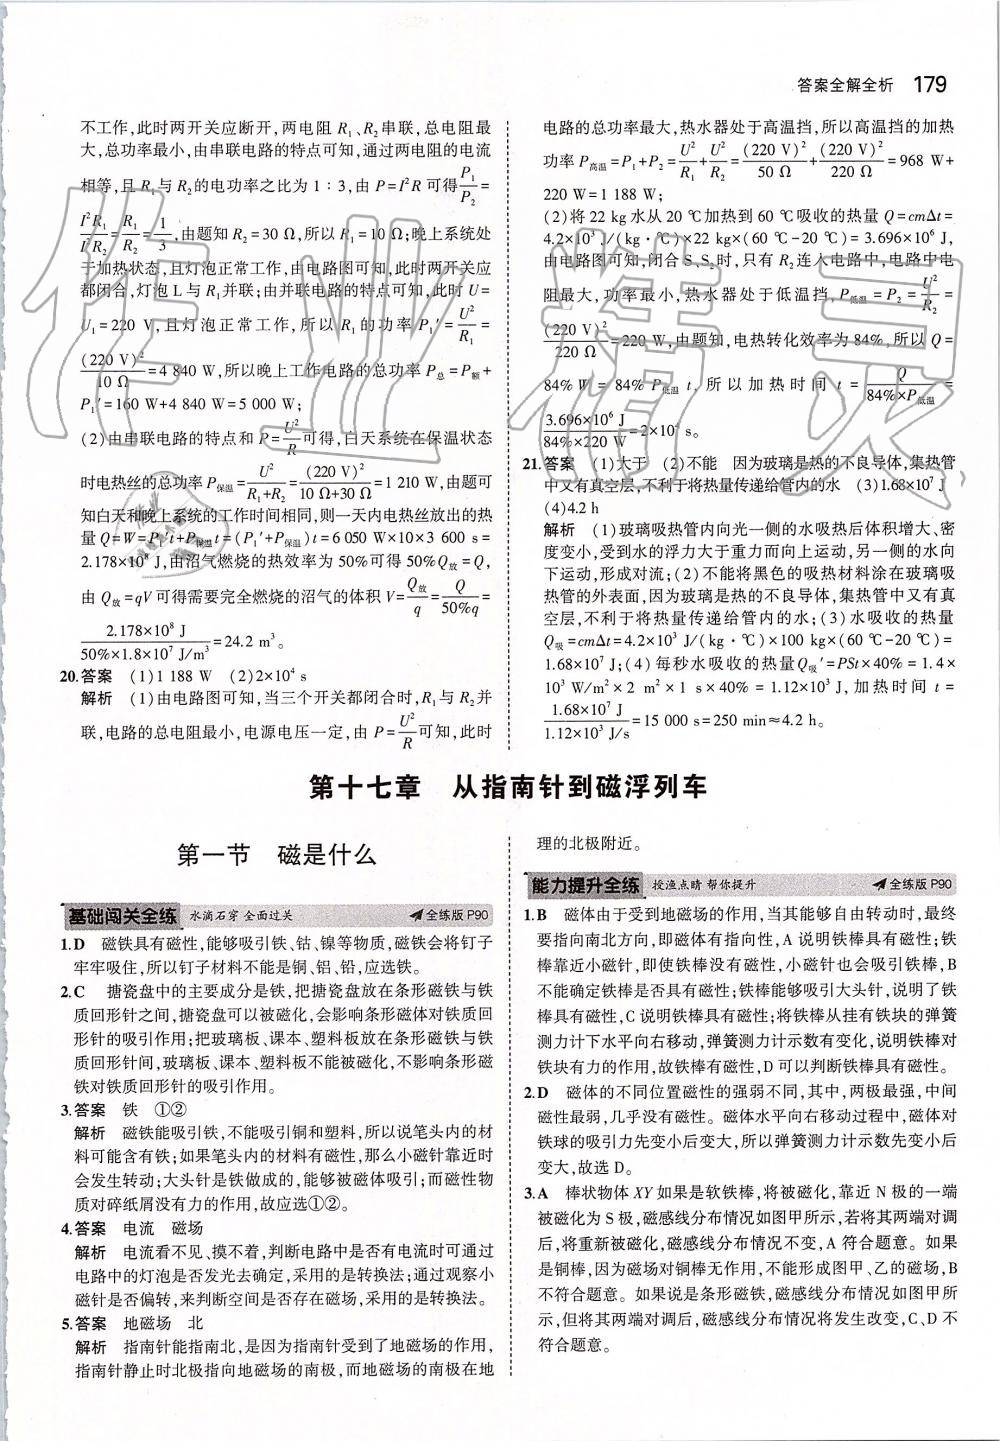 答案全解全析 179
不工作,此时两开关应断开,两电阻 R₁、R₂串联,总电阻最
大,总功率最小,由串联电路的特点可知,通过两电阻的电流
相等,且 R₁与 R₂的电功率之比为 1∶3,由 P=I²R 可得P₁/P₂=
I²R₁/I²R₂=R₁/R₂=1/3,由题知 R₂=30 Ω,所以 R₁=10 Ω;晚上系统处
于加热状态,且灯泡正常工作,由电路图可知,此时两开关应
都闭合,灯泡 L 与 R₁并联;由并联电路的特点可知,此时 U=
U₁=220 V,且灯泡正常工作,所以 R₁的功率 P₁′=U²/R₁=
(220 V)²/10 Ω=4 840 W,所以晚上工作电路的总功率 P总=P额+
P₁′=160 W+4 840 W=5 000 W;
(2)由串联电路的特点和 P=U²/R可得,白天系统在保温状态
时电热丝的总功率 P保温=U²/(R₁+R₂)=(220 V)²/(10 Ω+30 Ω)=1 210 W,由题可
知白天和晚上系统的工作时间相同,则一天内电热丝放出的热
量 Q=W=P₁′t+P保温t=(P₁′+P保温)t=6 050 W×10×3 600 s=
2.178×10⁸ J,由沼气燃烧的热效率为 50%可得 50%Q放=Q,
由 Q放=qV 可得需要完全燃烧的沼气的体积 V=Q放/q=Q/50%q=
2.178×10⁸ J/(50%×1.8×10⁷ J/m³)=24.2 m³。
20.答案 (1)1 188 W (2)2×10⁴ s
解析 (1)由电路图可知,当三个开关都闭合时,R₁与 R₂并
联,电路的总电阻最小,电源电压一定,由 P=U²/R可知,此时
电路的总功率最大,热水器处于高温挡,所以高温挡的加热
功率 P高温=P₁+P₂=U²/R₁+U²/R₂=(220 V)²/50 Ω+(220 V)²/220 Ω=968 W+
220 W=1 188 W;
(2)将 22 kg 水从 20 ℃加热到 60 ℃吸收的热量 Q=cmΔt=
4.2×10³ J/(kg·℃)×22 kg×(60 ℃-20 ℃)=3.696×10⁶ J,
由电路图可知,闭合 S、S₂时,只有 R₂连入电路中,电路中电
阻最大,功率最小,热水器处于低温挡,P低温=P₂=U²/R₂=
(220 V)²/220 Ω=220 W,由题知,电热转化效率为 84%,所以 Q=
84%W=84%P低温t,所以加热时间 t=Q/(84%×P低温)=
3.696×10⁶ J/(84%×220 W)=2×10⁴ s。
21.答案 (1)大于 (2)不能 因为玻璃是热的不良导体,集热管
中又有真空层,不利于将热量传递给管内的水 (3)1.68×10⁷ J
(4)4.2 h
解析 (1)玻璃吸热管内向光一侧的水吸热后体积增大、密
度变小,受到水的浮力大于重力而向上运动,另一侧的水向
下运动,形成对流;(2)不能将黑色的吸热材料涂在玻璃吸
热管的外表面,因为玻璃是热的不良导体,集热管中又有真
空层,不利于将热量传递给管内的水;(3)水吸收的热量
Q吸=cmΔt=4.2×10³ J/(kg·℃)×100 kg×(60 ℃-20 ℃)=
1.68×10⁷ J;(4)每秒水吸收的热量 Q吸′=PSt×40%=1.4×
10³ W/m²×2 m²×1 s×40%=1.12×10³ J,加热时间 t=
1.68×10⁷ J/1.12×10³ J/s=15 000 s=250 min≈4.2 h。
第十七章 从指南针到磁浮列车
第一节 磁是什么
基础闯关全练 水滴石穿 全面过关 全练版 P90
1.D 磁铁具有磁性,能够吸引铁、钴、镍等物质,磁铁会将钉子
牢牢吸住,所以钉子材料不能是铜、铝、铅,应选铁。
2.C 搪瓷盘中的主要成分是铁,把搪瓷盘放在条形磁铁与铁
质回形针之间,搪瓷盘可以被磁化,会影响条形磁体对铁质回
形针的吸引作用;把玻璃板、课本、塑料板放在条形磁铁与铁
质回形针间,玻璃板、课本、塑料板不能被磁化,不影响条形磁
铁对铁质回形针的吸引作用。
3.答案 铁 ①②
解析 磁铁能吸引铁,不能吸引铜和塑料,所以说笔头内的材
料可能含有铁;如果笔头内的材料有磁性,那么小磁针靠近时
会发生转动;大头针是铁做成的,能够被磁体吸引;而磁性物
质对碎纸屑没有力的作用,故应选①②。
4.答案 电流 磁场
解析 电流看不见、摸不着,判断电路中是否有电流时可通过
电路中的灯泡是否发光去确定,采用的是转换法;通过观察小
磁针是否偏转,来判断空间是否存在磁场,采用的是转换法。
5.答案 地磁场 北
解析 指南针能指南北,是因为指南针受到了地磁场的作用,
指南针静止时北极指向地磁场的南极,而地磁场的南极在地
理的北极附近。
能力提升全练 授渔点睛 帮你提升 全练版 P90
1.B 磁体由于受到地磁场的作用,当其能够自由转动时,最终
要指向南北方向,即磁体有指向性,A 说明铁棒具有磁性;铁
棒靠近小磁针,即使铁棒没有磁性,小磁针也会吸引铁棒,B
不能确定铁棒是否具有磁性;铁棒能够吸引大头针,说明了铁
棒具有磁性,C 说明铁棒具有磁性;将铁棒从挂有铁块的弹簧
测力计下水平向右移动,弹簧测力计示数有变化,说明铁棒对
铁块有力的作用,故铁棒有磁性,D 可以判断铁棒具有磁性。
2.D 磁体的不同位置磁性的强弱不同,其中,两极最强,中间
磁性最弱,几乎没有磁性。磁体水平向右移动过程中,磁体对
铁球的吸引力先变小后变大,所以弹簧测力计示数先变小后
变大,故选 D。
3.A 棒状物体 XY 如果是软铁棒,将被磁化,靠近 N 极的一端
被磁化为 S 极,磁感线分布情况如图甲所示,若将其两端对调
后,将重新被磁化,磁感线分布情况不变,A 符合题意。如果
是铜棒,因为磁场对铜棒无作用,不能形成图甲、乙的磁场,B
不符合题意。如果说是条形磁铁,磁感线分布情况如图甲所
示,但将其两端对调,磁感线分布情况将发生改变,C、D 不
符合题意。
作业精灵